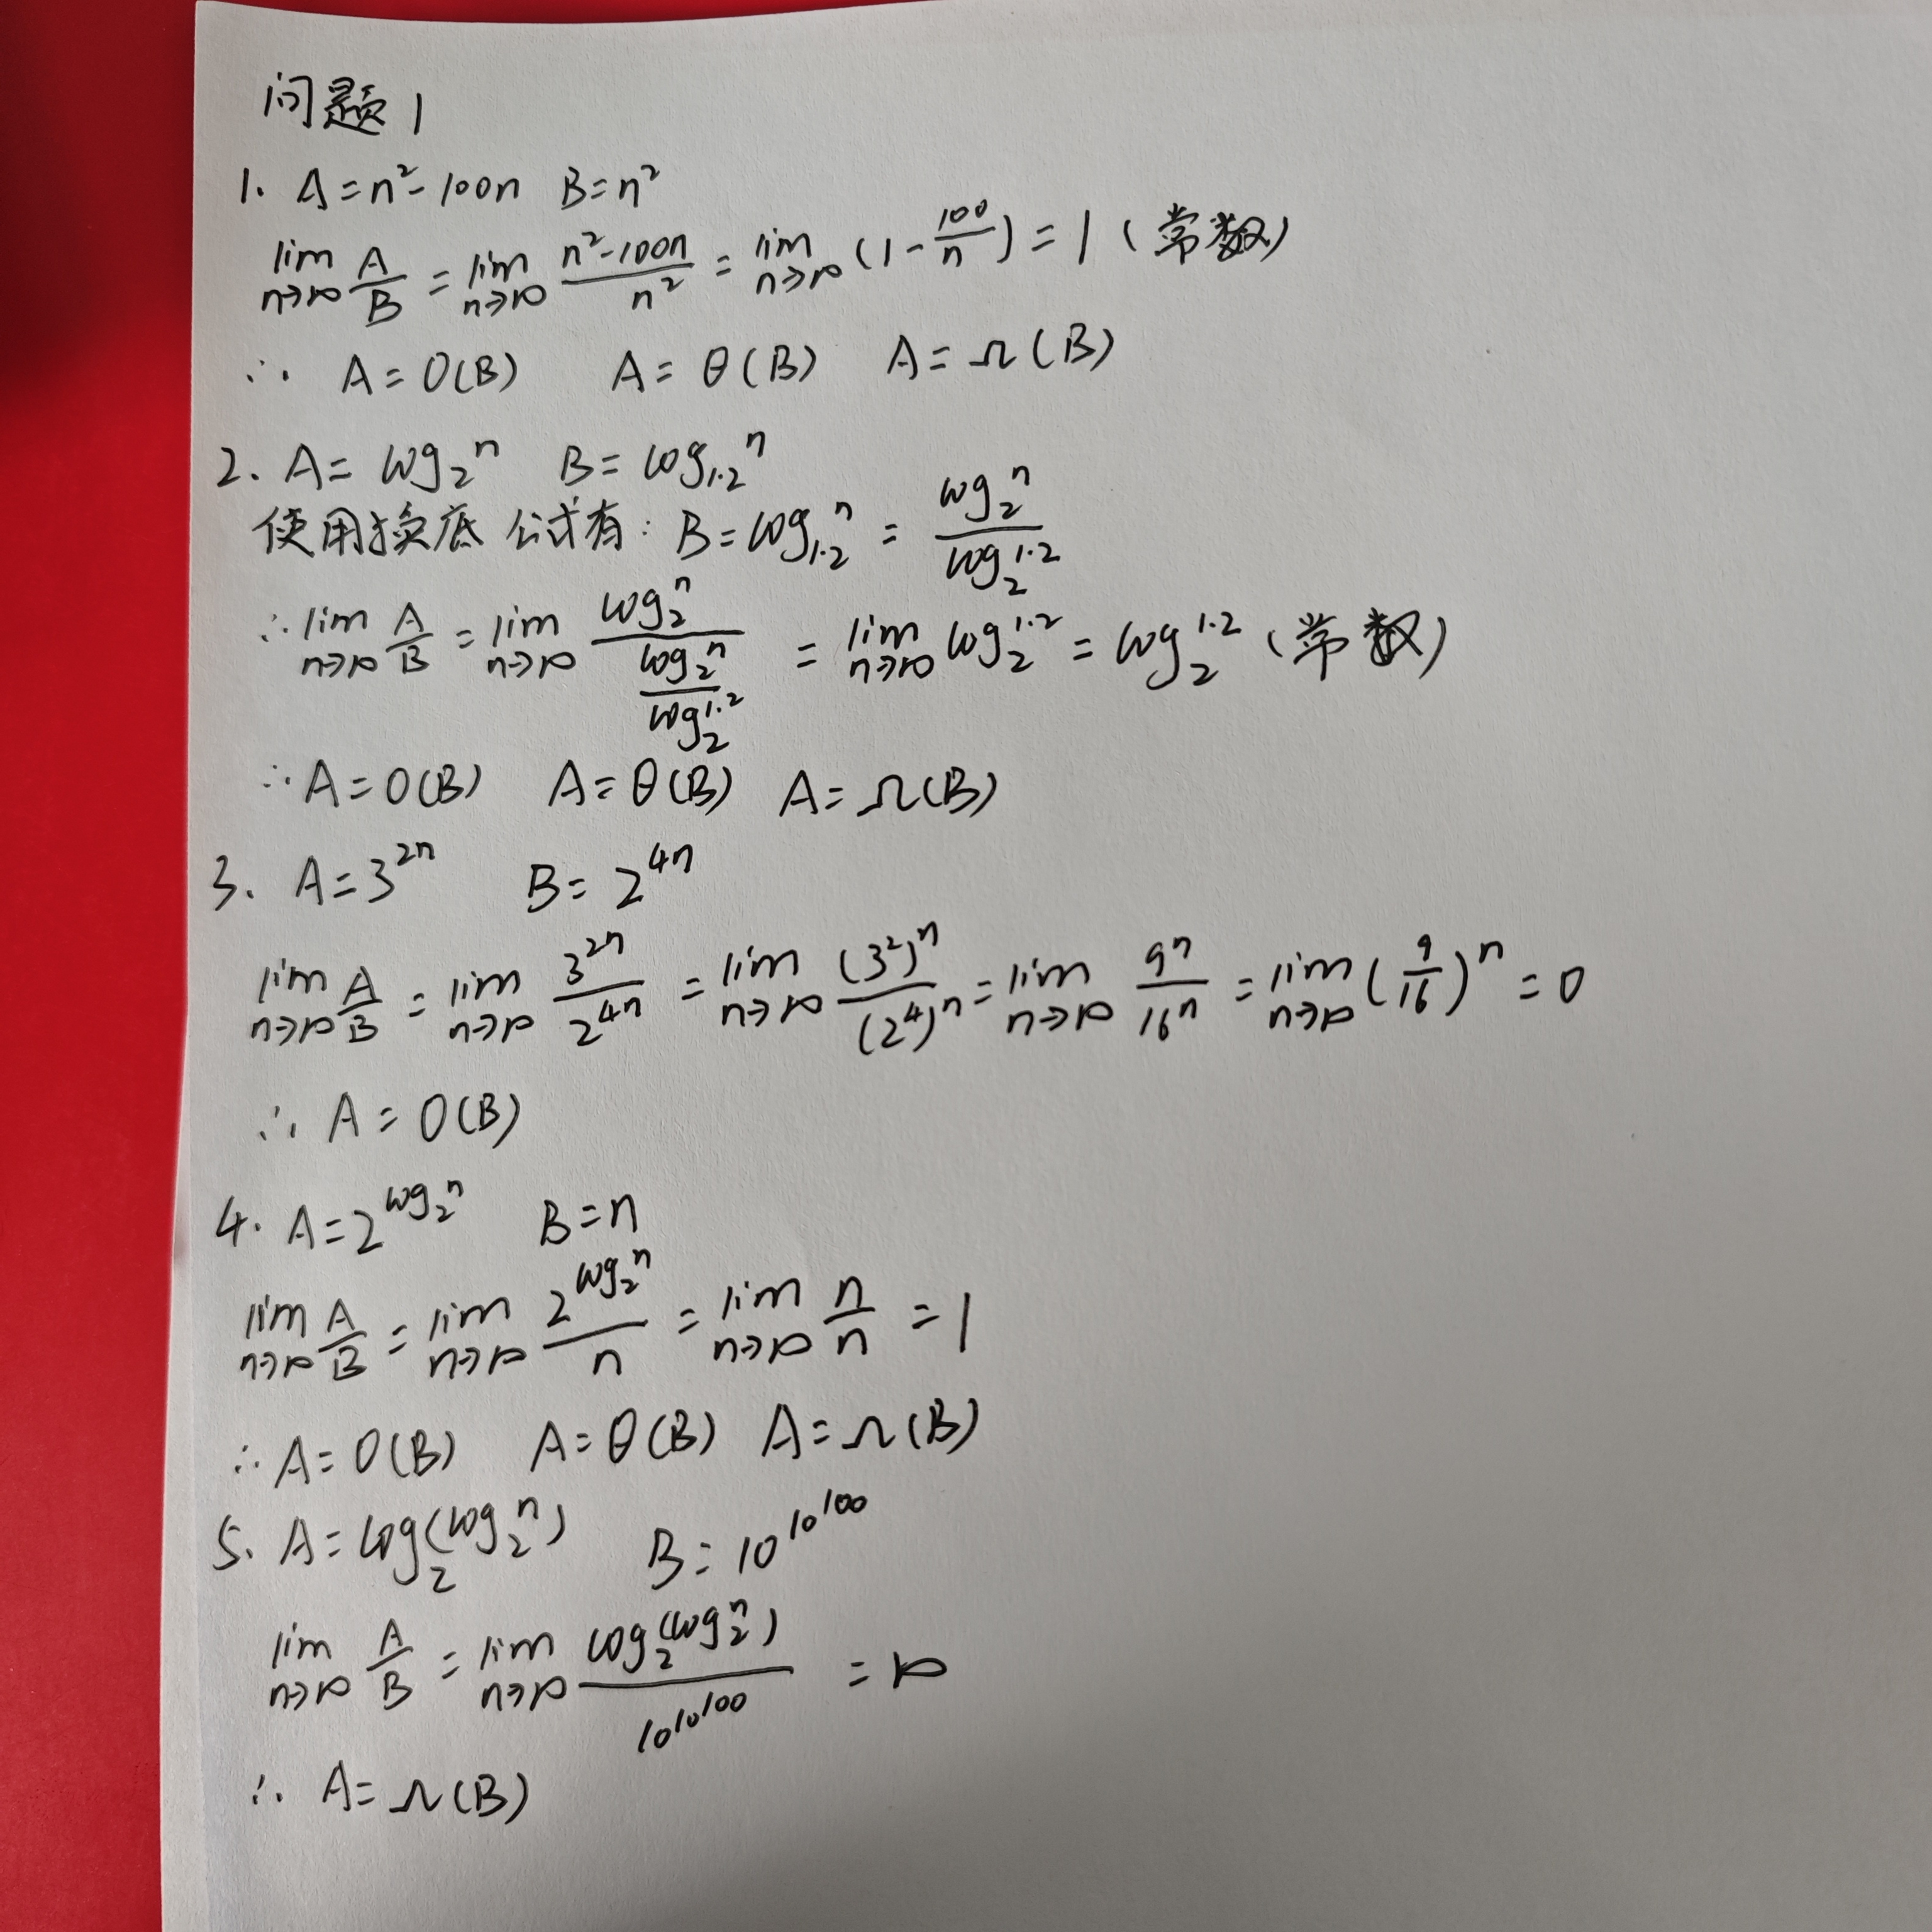 问题1
1. A=n²-100n B=n²
lim n→∞ A/B = lim n→∞ (n²-100n)/n² = lim n→∞ (1-100/n) = 1 (常数)
∴ A=O(B) A=θ(B) A=Ω(B)
2. A=log₂ⁿ B=log₁.₂ⁿ
使用换底公式有: B=log₁.₂ⁿ = log₂ⁿ/log₂^1.2
∴ lim n→∞ A/B = lim n→∞ log₂ⁿ/(log₂ⁿ/log₂^1.2) = lim n→∞ log₂^1.2 = log₂^1.2 (常数)
∴ A=O(B) A=θ(B) A=Ω(B)
3. A=3^2n B=2^4n
lim n→∞ A/B = lim n→∞ 3^2n/2^4n = lim n→∞ (3²)ⁿ/(2⁴)ⁿ = lim n→∞ 9ⁿ/16ⁿ = lim n→∞ (9/16)ⁿ = 0
∴ A=O(B)
4. A=2^log₂ⁿ B=n
lim n→∞ A/B = lim n→∞ 2^log₂ⁿ/n = lim n→∞ n/n = 1
∴ A=O(B) A=θ(B) A=Ω(B)
5. A=log₂(log₂ⁿ) B=10^10^100
lim n→∞ A/B = lim n→∞ log₂(log₂ⁿ)/10^10^100 = ∞
∴ A=Ω(B)